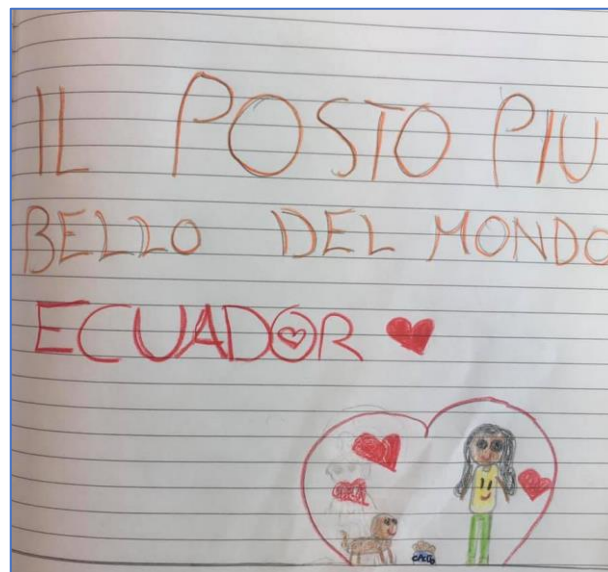 IL POSTO PIU
BELLO DEL MONDO
ECUADOR